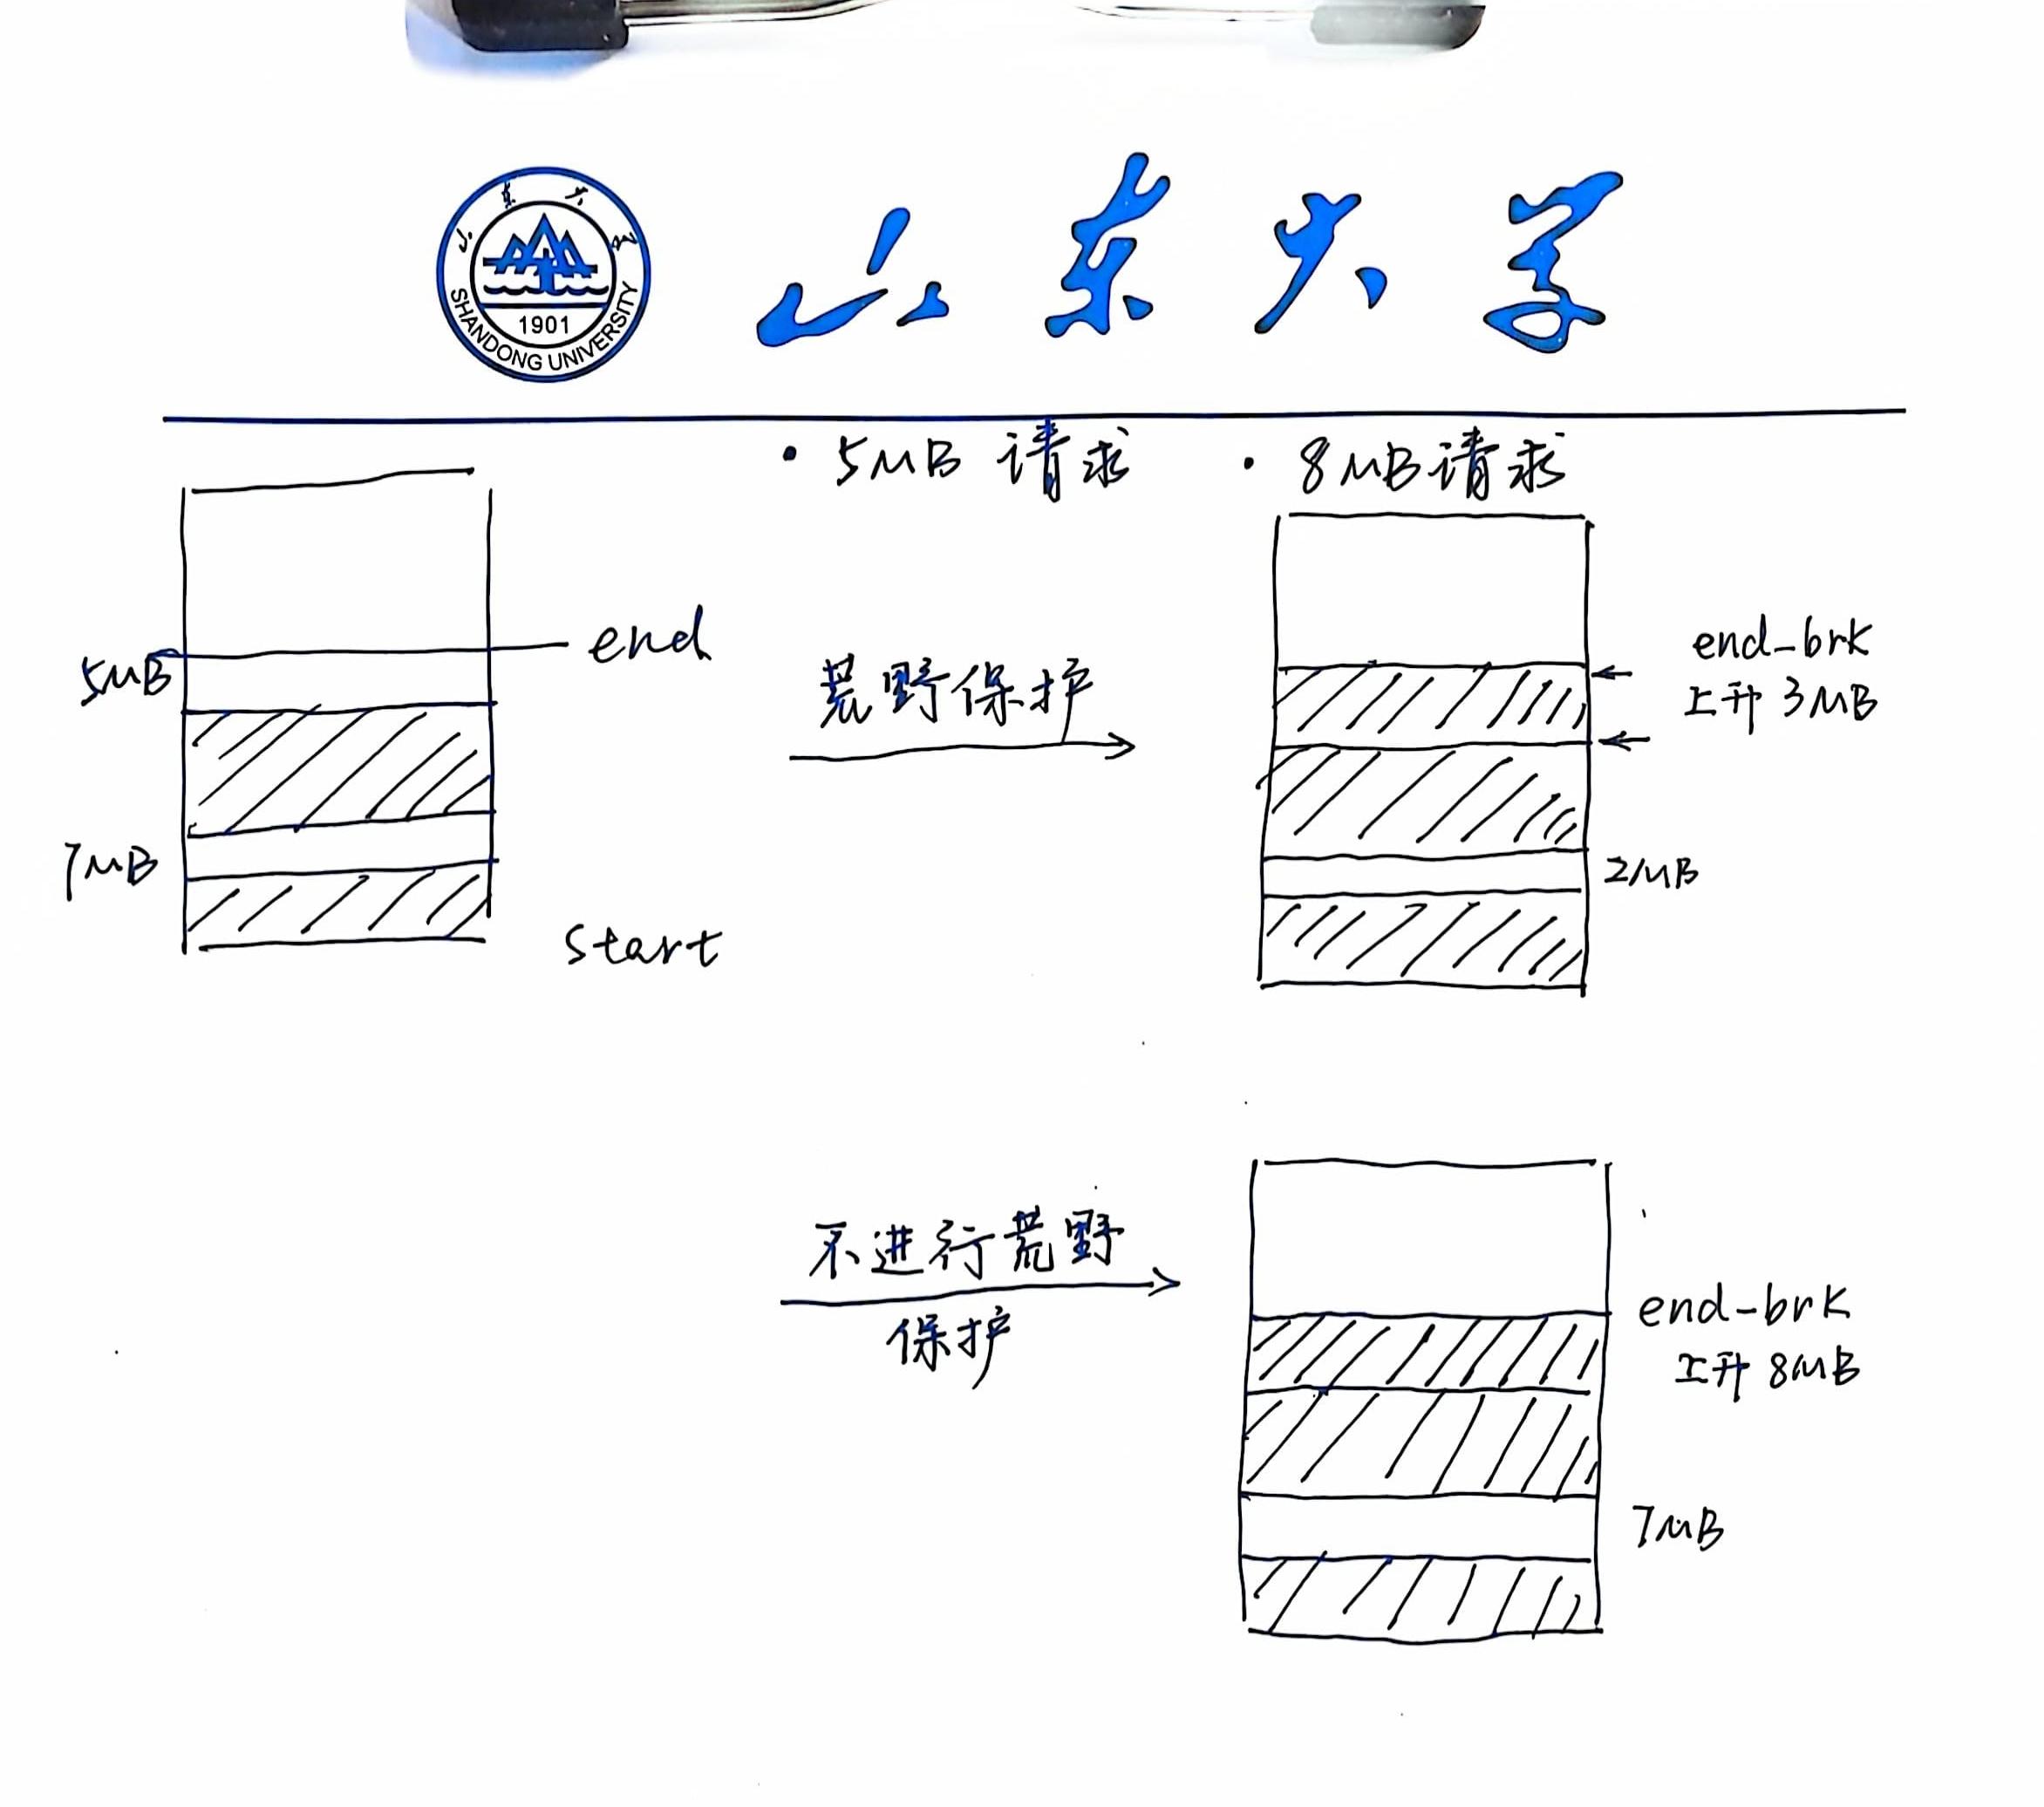 山东大学
山东大学
SHANDONG UNIVERSITY
1901
· 5MB 请求
· 8MB 请求
5MB
end
7MB
start
荒野保护
end-brk
上升 3MB
2MB
不进行荒野
保护
end-brk
上升 8MB
7MB